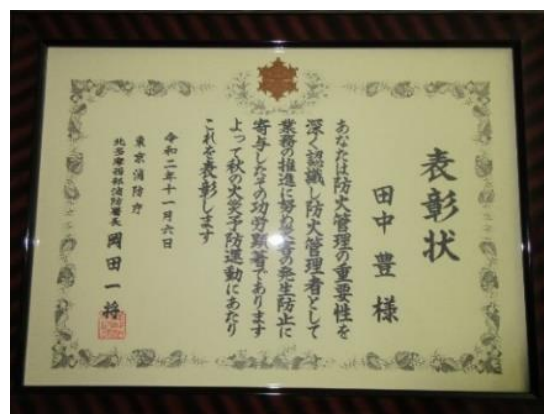 表彰状
田中豊様
あなたは防火管理の重要性を
深く認識し防火管理者として
業務の推進に努め災害の発生防止に
寄与したその功労顕著であります
よって秋の火災予防運動にあたり
これを表彰します
令和二年十一月六日
東京消防庁
北多摩西部消防署長 岡田一将